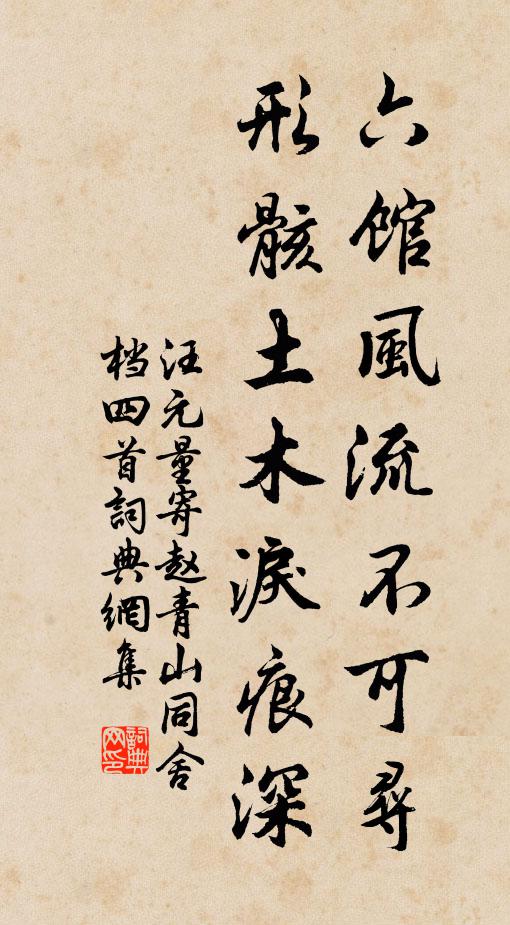 六館風流不可尋
形骸土木淚痕深
汪元量寄赵青山同舍
档四首詞典網集
詞典网印